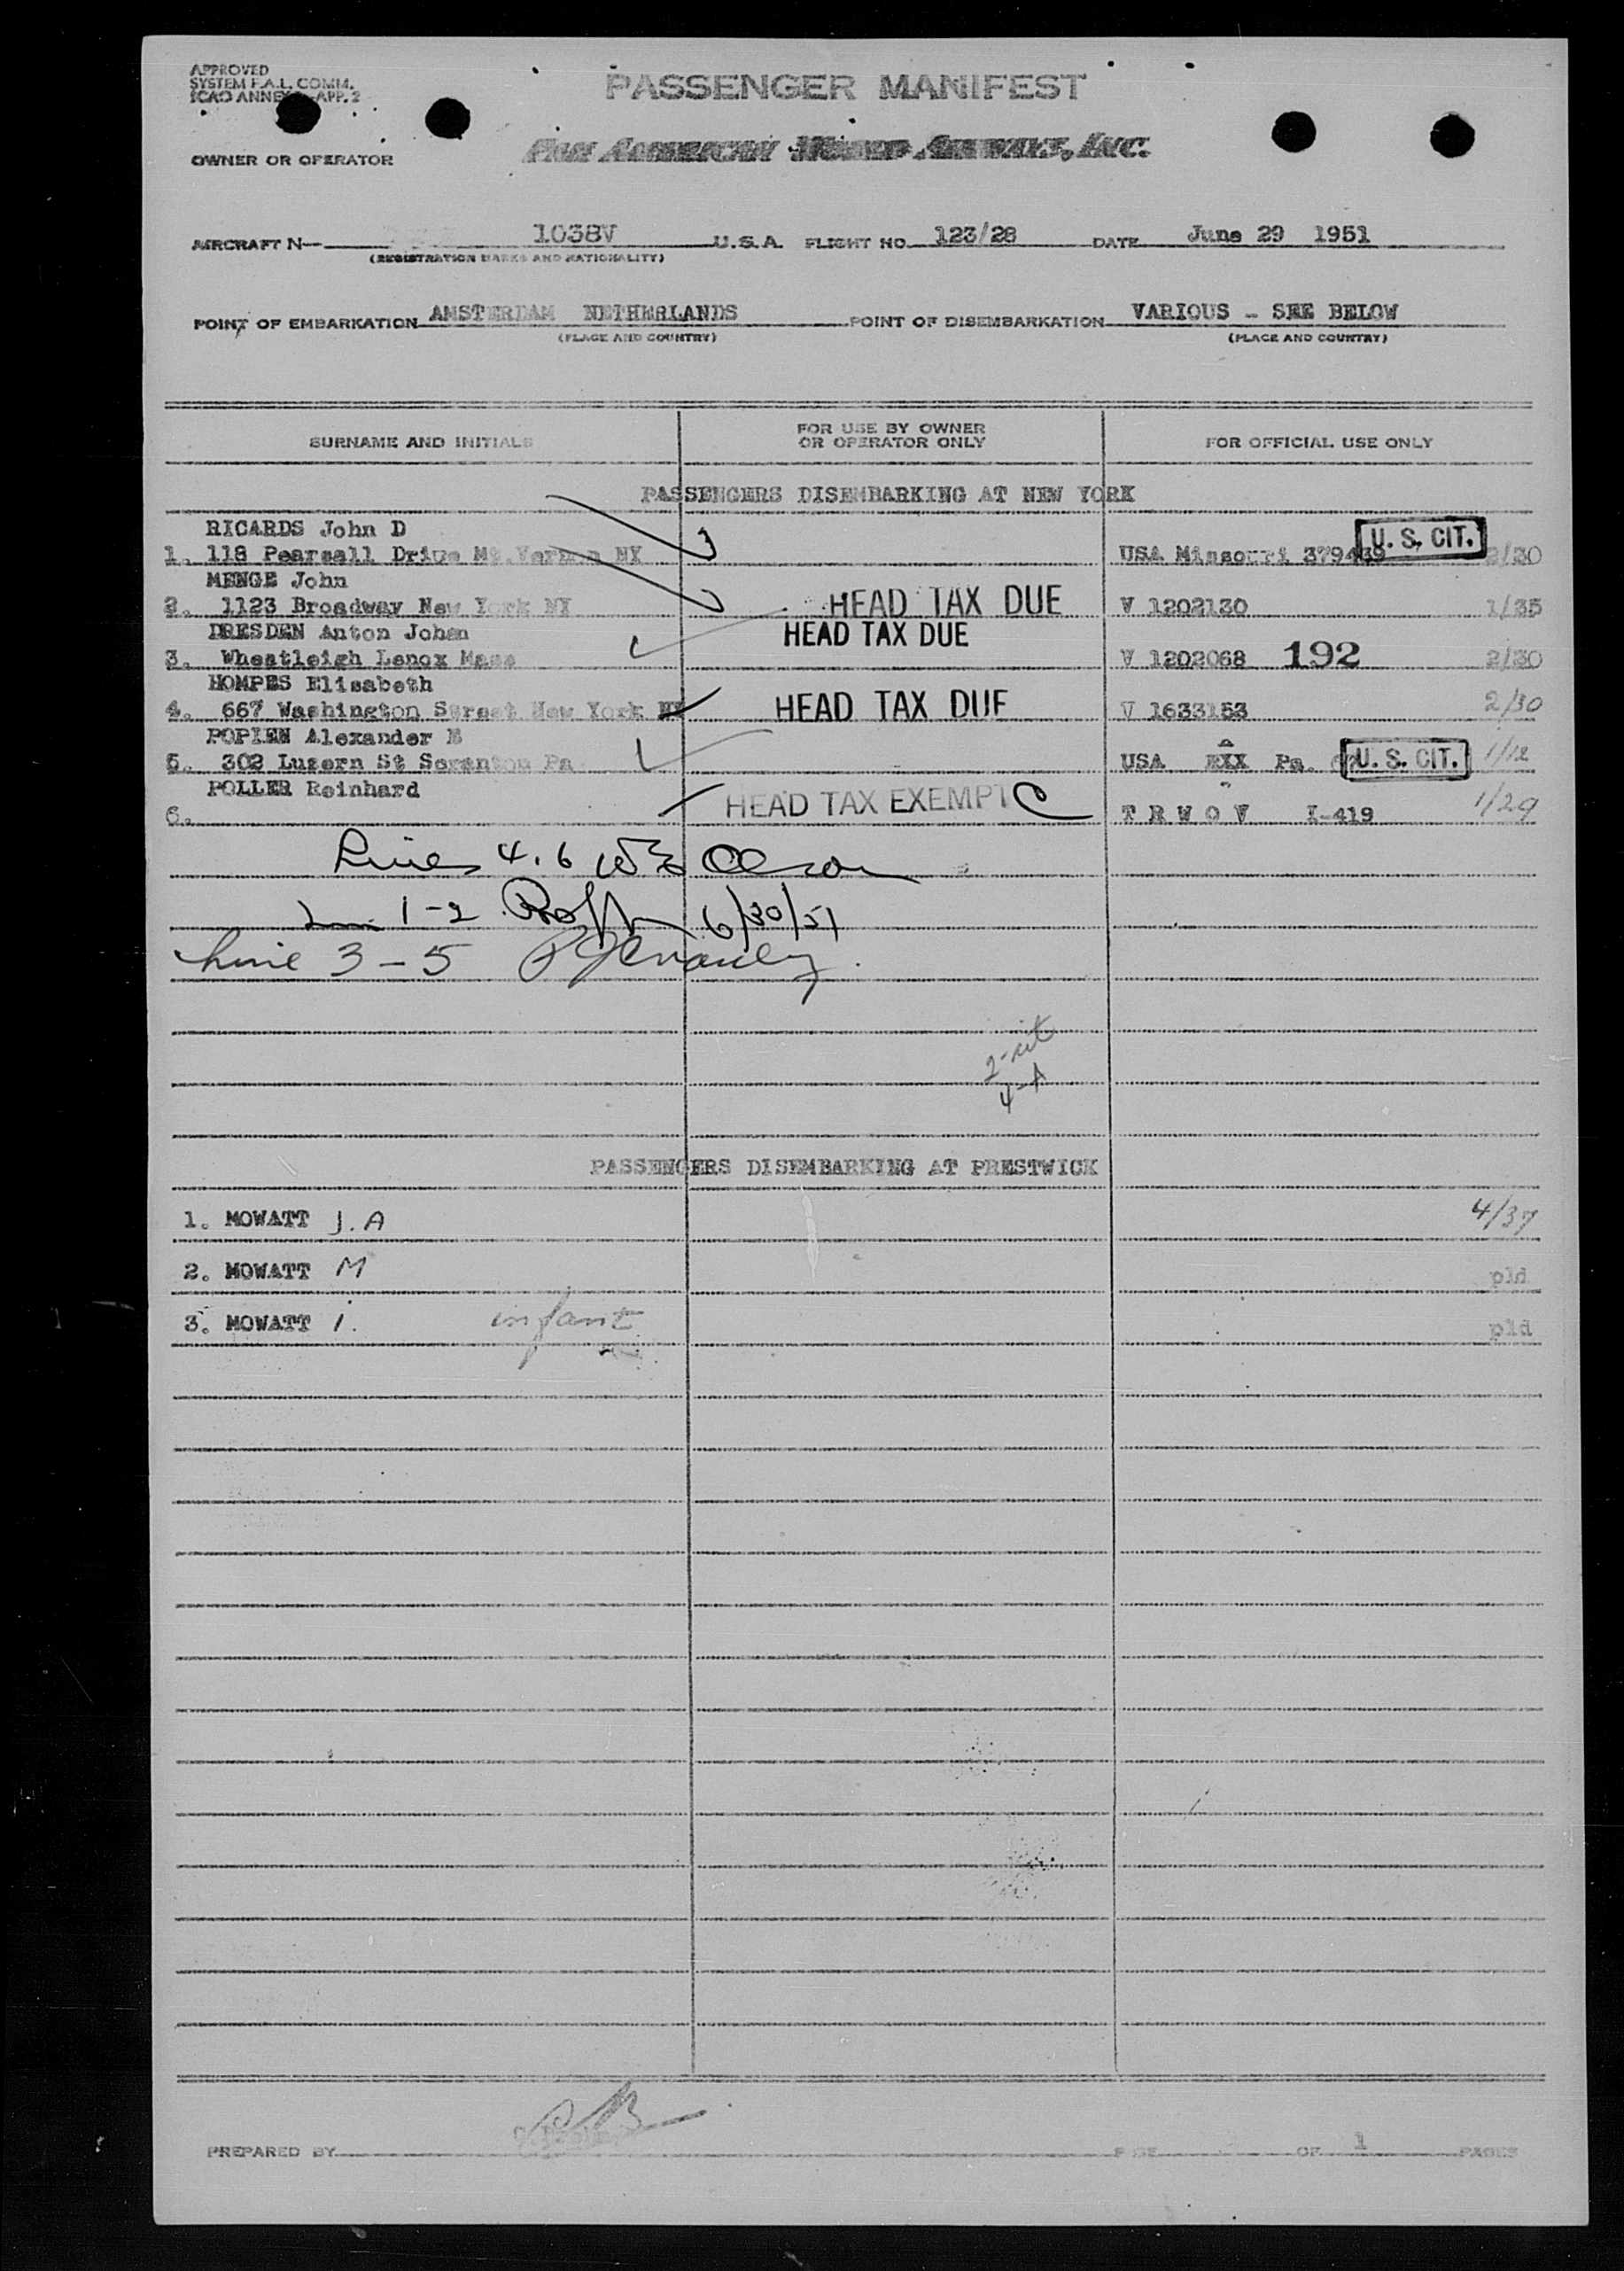 APPROVED
SYSTEM F.A.L. COMM.
ICAO ANNEX APP. 2
PASSENGER MANIFEST
OWNER OR OPERATOR PAN AMERICAN WORLD AIRWAYS, INC.
AIRCRAFT N— 1038V U.S.A. FLIGHT NO. 123/28 DATE June 29 1951
(REGISTRATION MARKS AND NATIONALITY)
POINT OF EMBARKATION AMSTERDAM NETHERLANDS POINT OF DISEMBARKATION VARIOUS - SEE BELOW
(PLACE AND COUNTRY) (PLACE AND COUNTRY)
SURNAME AND INITIALS FOR USE BY OWNER OR OPERATOR ONLY FOR OFFICIAL USE ONLY
PASSENGERS DISEMBARKING AT NEW YORK
RICARDS John D
1. 118 Pearsall Drive Mt.Vernon NY USA Missouri 379439 U. S. CIT. 2/30
MENGE John
2. 1123 Broadway New York NY HEAD TAX DUE V 1202130 1/35
DRESDEN Anton Johan HEAD TAX DUE
3. Wheatleigh Lenox Mass V 1202068 192 2/30
HOMPES Elisabeth
4. 667 Washington Street New York NY HEAD TAX DUE V 1633153 2/30
POPIEN Alexander
5. 302 Luzern St Scranton Pa USA XXX Pa. U. S. CIT. 1/12
POLLER Reinhard
6. HEAD TAX EXEMPT C T R W O V I-419 1/29
Lines 4.6 Olson
1-2 6/30/51
Line 3-5
2-cit
4-A
PASSENGERS DISEMBARKING AT PRESTWICK
1. MOWATT J.A 4/37
2. MOWATT M pld
3. MOWATT i. infant pld
PREPARED BY PAGE OF 1 PAGES